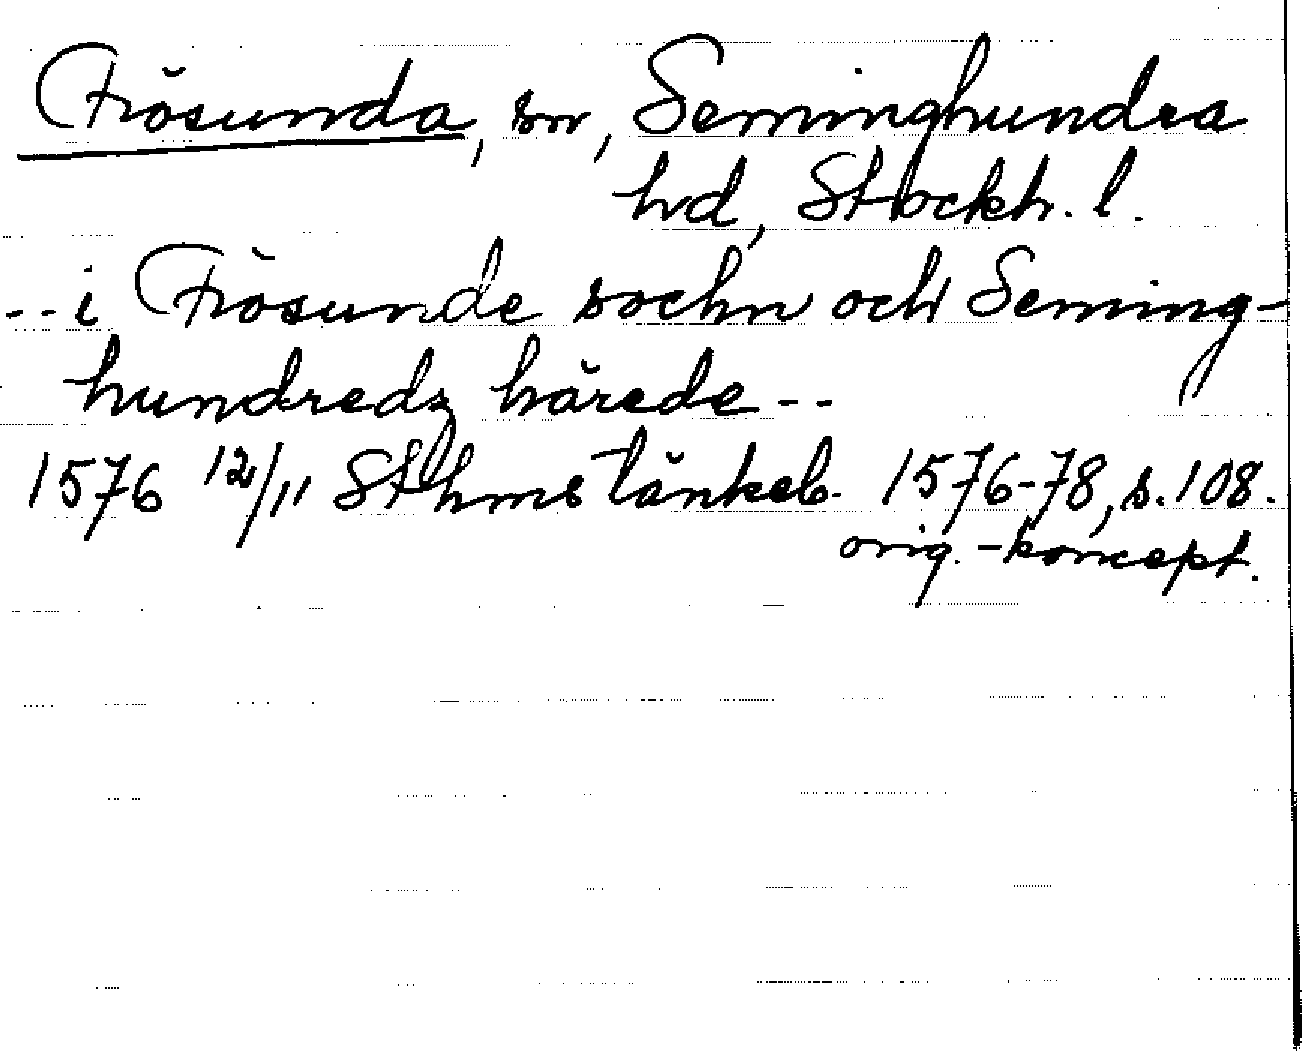 Frösunda, sn, Seminghundra
hd, Stockh. l.
-- i Frösunde sochn och Seming-
hundredz härede --
1576 12/11 Sthms tänkeb. 1576-78, s. 108.
orig.-koncept.